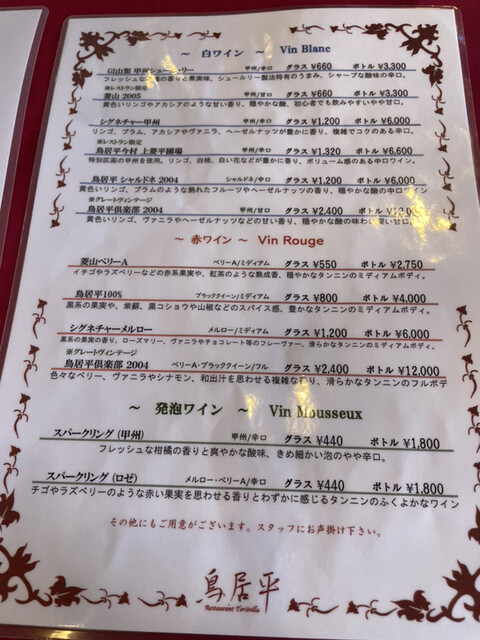 ～ 白ワイン ～ Vin Blanc
GI山梨 甲州シュー リー 甲州/辛口 グラス ¥660 ボトル ¥3,300
フレッシュな柑橘の香りと果実味、シュールリー製法特有のうまみ、シャープな酸味の辛口。
※レストラン限定
菱山 2005 甲州/甘口 グラス ¥660 ボトル ¥3,300
黄色いリンゴやアカシアのような甘い香り、穏やかな酸、初心者でも飲みやすいやや甘口。
シグネチャー甲州 甲州/辛口 グラス ¥1,200 ボトル ¥6,000
リンゴ、プラム、アカシアやヴァニラ、ヘーゼルナッツが豊かに香り、複雑でコクのある辛口。
※レストラン限定
鳥居平今村 上菱平圃場 甲州/辛口 グラス ¥1,320 ボトル ¥6,600
特別区画の甲州を使用。リンゴ、白桃、白い花などが豊かに香り、ボリューム感のある中口ワイン。
鳥居平 シャルドネ 2004 シャルドネ/中口 グラス ¥1,200
黄色いリンゴ、プラムのような熟れたフルーツやヘーゼルナッツの香り、穏やかな酸の中口ワイン
※グレートヴィンテージ
鳥居平倶楽部 2004 甲州/甘口 グラス ¥2,400 ボトル
黄色いリンゴ、ヴァニラやヘーゼルナッツなどの甘い香り、穏やかな酸の味わい深い甘口。
～ 赤ワイン ～ Vin Rouge
菱山ベリーA ベリーA/ミディアム グラス ¥550 ボトル ¥2,750
イチゴやラズベリーなどの赤系果実や、紅茶のような熟成香、穏やかなタンニンのミディアムボディ。
鳥居平100% ブラッククイーン/ミディアム グラス ¥800 ボトル ¥4,000
黒系の果実や、紫蘇、黒コショウや山椒などのスパイス感、豊かなタンニンのミディアムボディ。
シグネチャーメルロー メルロー/ミディアム グラス ¥1,200 ボトル ¥6,000
黒系の果実の香り、ローズマリー、ヴァニラやチョコレート等のフレーヴァー、滑らかなタンニンのミディアムボディ。
※グレートヴィンテージ
鳥居平倶楽部 2004 ベリーA・ブラッククイーン/フル グラス ¥2,400 ボトル ¥12,000
色々なベリー、ヴァニラやシナモン、和出汁を思わせる複雑な香り、滑らかなタンニンのフルボデ
～ 発泡ワイン ～ Vin Mousseux
スパークリング (甲州) 甲州/辛口 グラス ¥440 ボトル ¥1,800
フレッシュな柑橘の香りと爽やかな酸味、きめ細かい泡のやや辛口。
スパークリング (ロゼ) メルロー・ベリーA/辛口 グラス ¥440 ボトル ¥1,800
チゴやラズベリーのような赤い果実を思わせる香りとわずかに感じるタンニンのふくよかなワイン
その他にもご用意がございます。スタッフにお声掛け下さい。
鳥居平
Restaurant Toriivilla